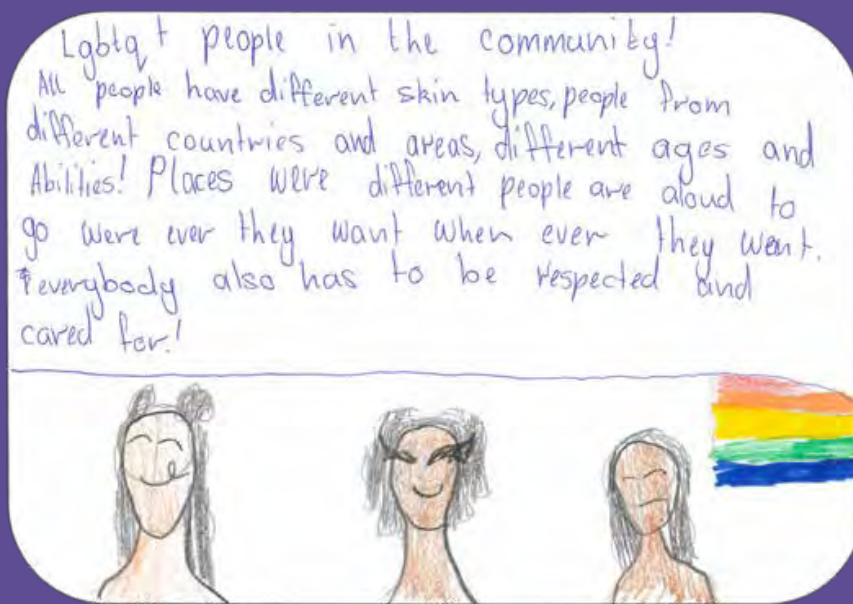 Lgbtq+ people in the community!
All people have different skin types, people from
different countries and areas, different ages and
Abilities! Places were different people are aloud to
go were ever they want when ever they want.
everybody also has to be respected and
cared for!